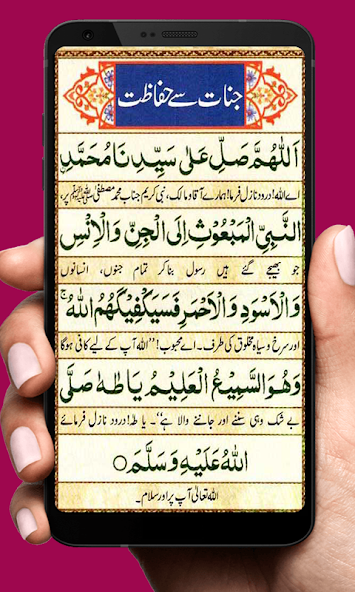 جنات سے حفاظت
اَللّٰهُمَّ صَلِّ عَلٰی سَیِّدِنَا مُحَمَّدِنِ
اے اللہ! درود نازل فرما! ہمارے آقا و مالک، نبی کریم جناب محمد مصطفیٰ ﷺ پر
النَّبِیِّ الْمَبْعُوْثِ اِلَی الْجِنِّ وَالْاِنْسِ
جو بھیجے گئے ہیں رسول بنا کر تمام جنوں، انسانوں
وَالْاَسْوَدِ وَالْاَحْمَرِ فَسَیَكْفِیْكَهُمُ اللّٰهُ ۚ
اور سرخ و سیاہ مخلوق کی طرف۔ اے محبوب! ’’اللہ آپ کے لیے کافی ہوگا
وَهُوَ السَّمِیْعُ الْعَلِیْمُ یَا طٰهٰ صَلَّی
بے شک وہی سننے اور جاننے والا ہے‘‘۔ یا طہٰ! درود نازل فرمائے
اللّٰهُ عَلَیْهِ وَسَلَّمَ ○
اللہ تعالیٰ آپ پر اور سلام۔